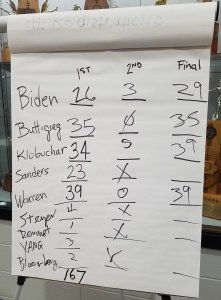 1ST 2ND Final
Biden 26 3 29
Buttigieg 35 0 35
Klobuchar 34 5 39
Sanders 23 X
Warren 39 0 39
Steyer 4 X
Bennet 1 X
YANG 3
Bloomberg 2 X
167